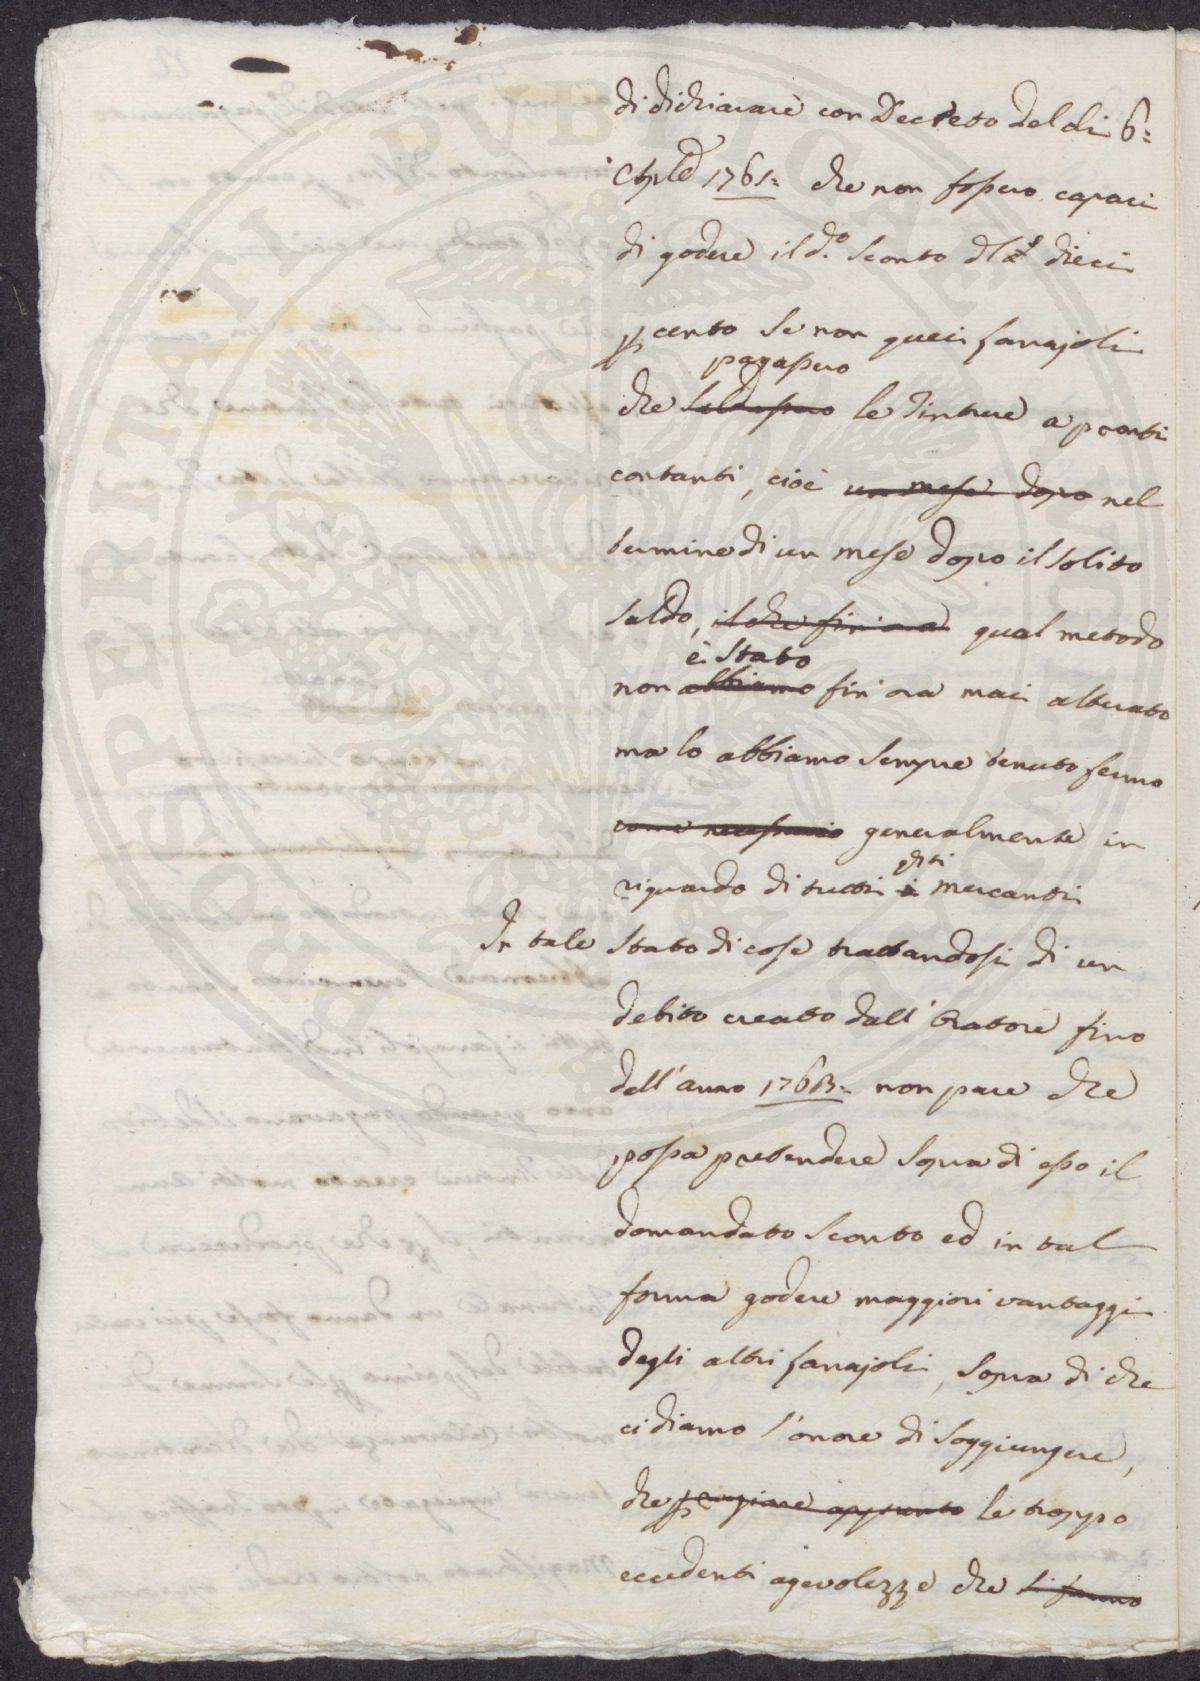 di dichiarare con Decreto del dì 6:
1761: che non fossero capaci
di godere il d.o sconto del dieci
p cento se non quei lanajoli
pagassero
che saldassero le Tinture a pronti
contanti, cioè un mese dopo nel
termine di un mese dopo il solito
saldo, il che fin' ora qual metodo
è stato
non abbiamo fin' ora mai alterato
ma lo abbiamo sempre tenuto fermo
come necessario generalmente in
riguardo di tutti i Mercanti
In tale stato di cose trattandosi di un
debito creato dall' Oratore fino
dell' anno 1763: non pare che
possa pretendere sopra di esso il
domandato sconto ed in tal
forma godere maggiori vantaggi
degli altri lanajoli, sopra di che
ci diamo l'onore di soggiungere,
che appunto le troppo
eccedenti agevolezze che si fanno
PROSPERITATI PUBLICAE